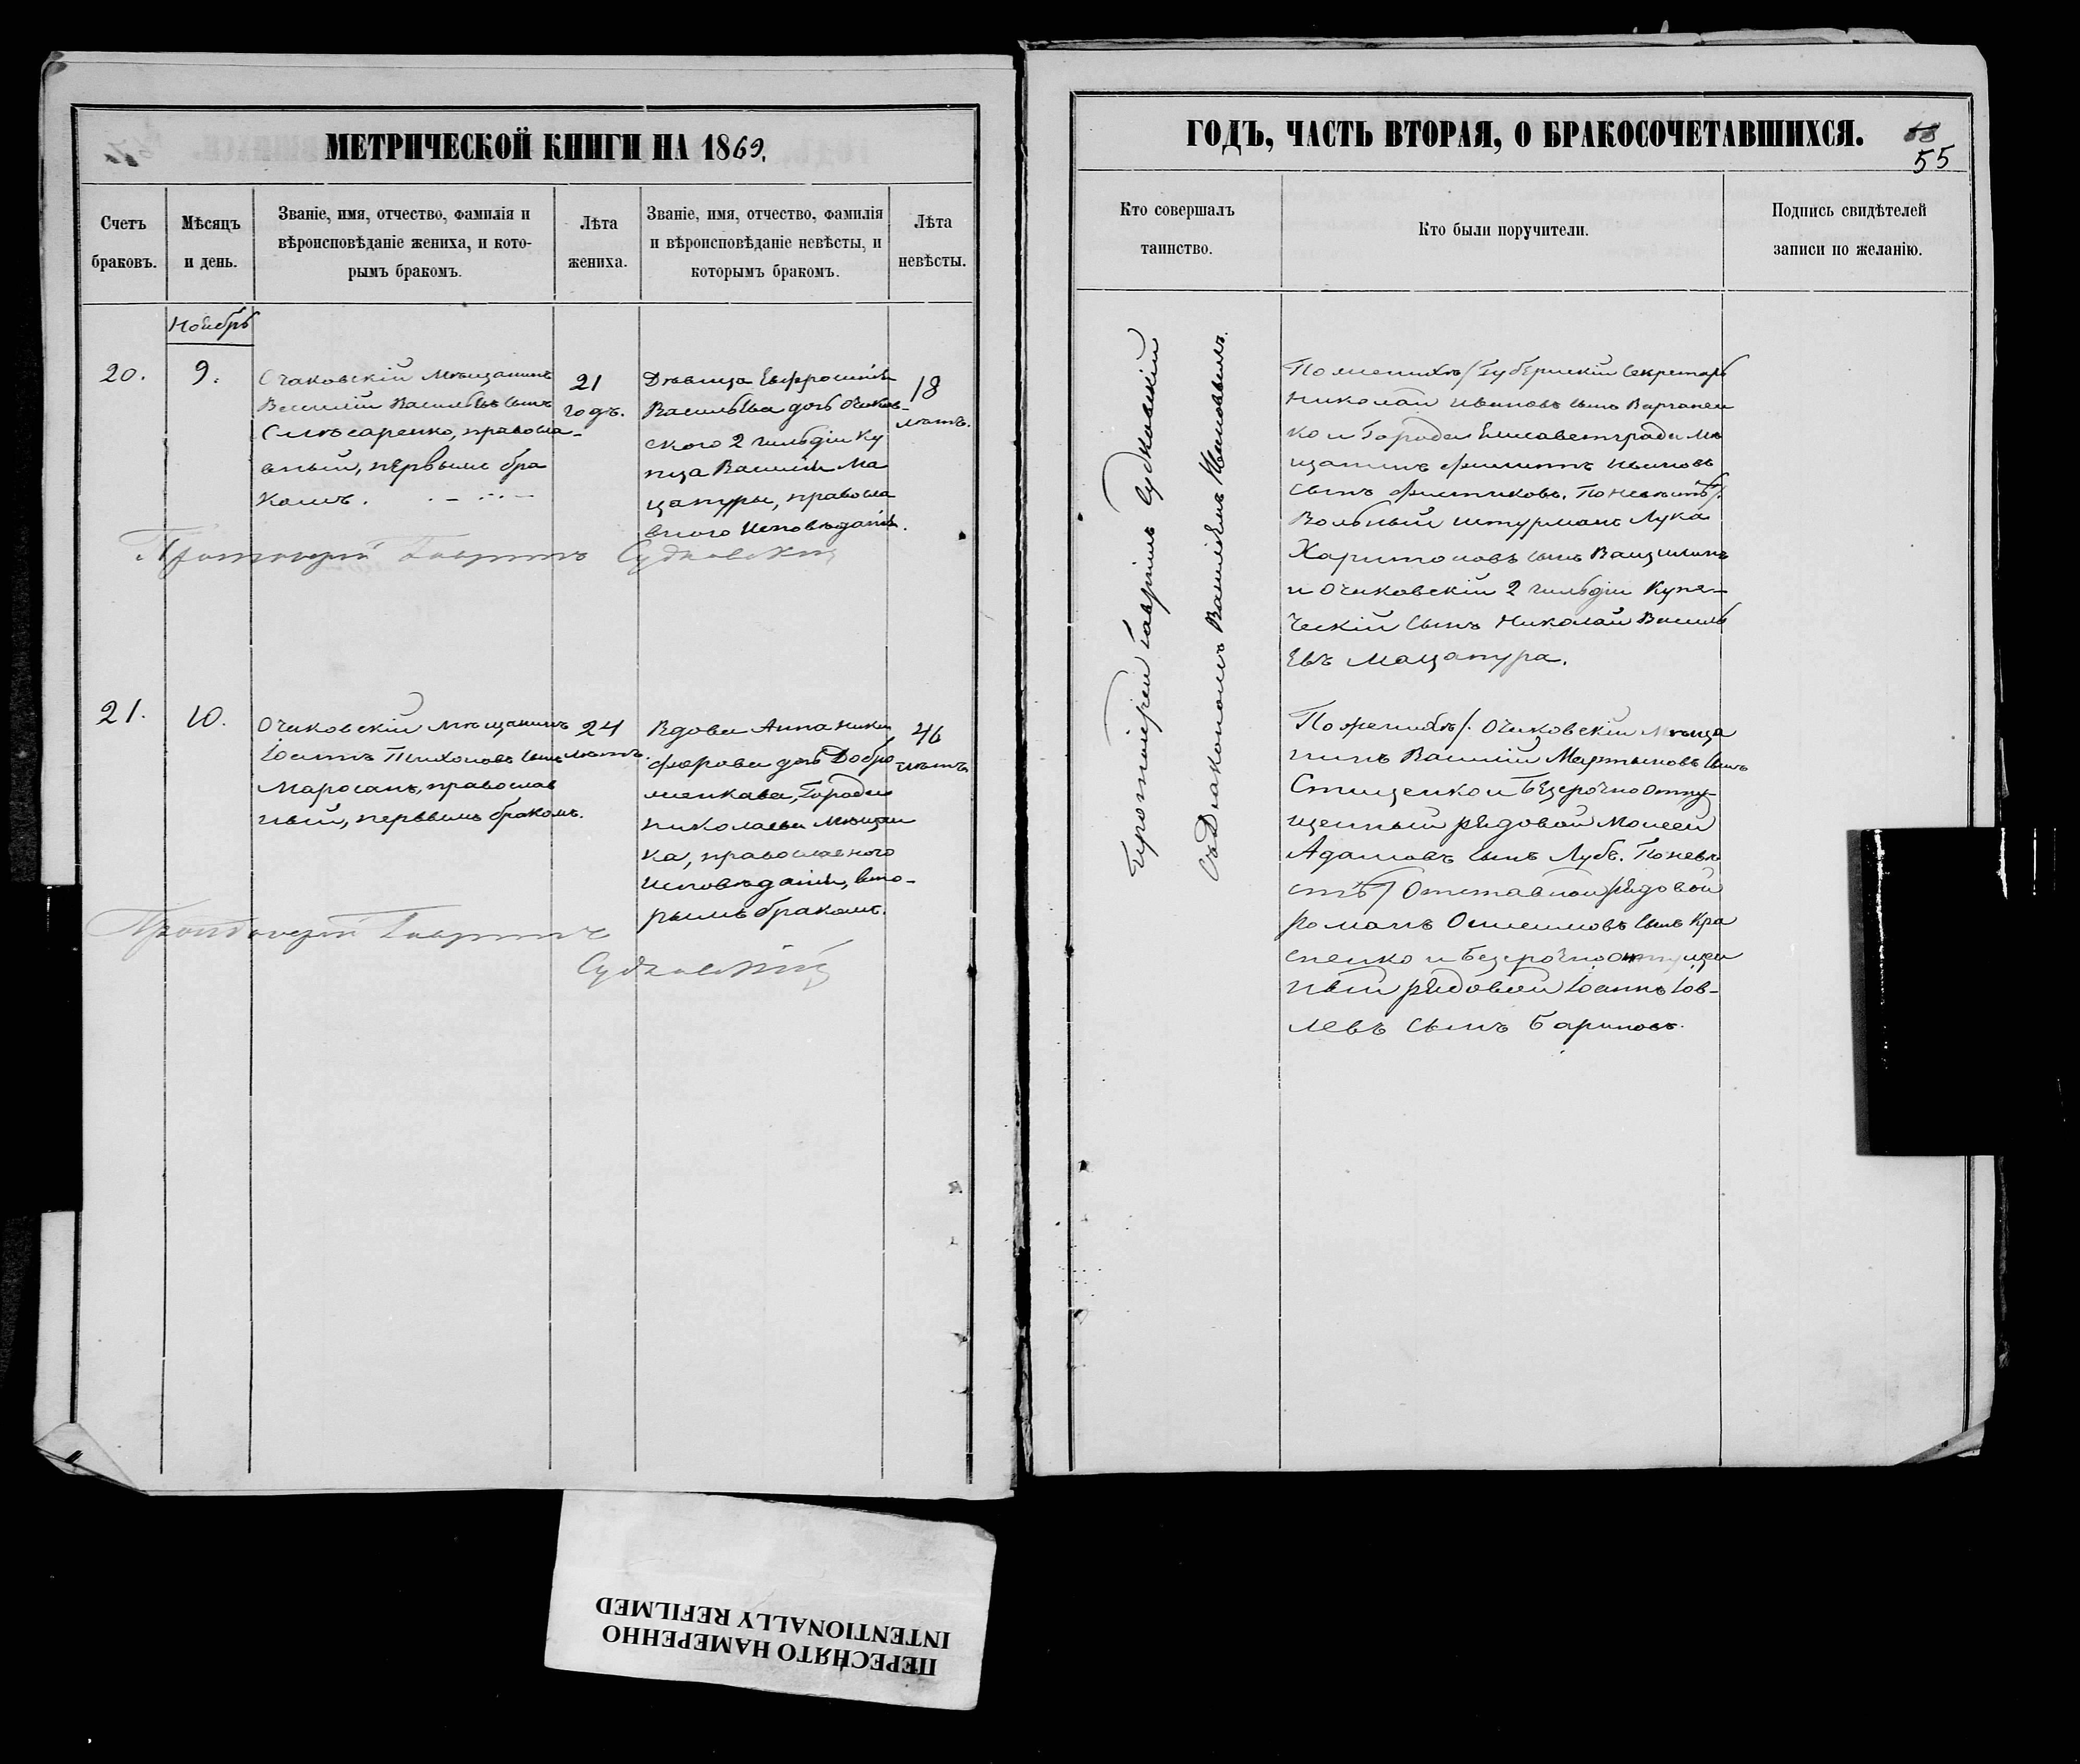 МЕТРИЧЕСКОЙ КНИГИ НА 1869.
Счетъ
браковъ.
Мѣсяцъ
и день.
Званіе, имя, отчество, фамилія и
вѣроисповѣданіе жениха, и кото-
рымъ бракомъ.
Лѣта
жениха.
Званіе, имя, отчество, фамилія
и вѣроисповѣданіе невѣсты, и
которымъ бракомъ.
Лѣта
невѣсты.
Ноябрь
20.
9.
Очаковскій мѣщанинъ
Василій Васильевъ сынъ
Слѣсаренко, правосла-
вный, первымъ бра
комъ.
21
годъ.
Дѣвица Евфросинія
Васильева дочь Очаков-
ского 2 гильдіи Ку
пца Василія Ма
цапуры, правосла
вного исповѣданія.
18
лѣтъ.
Протоіерей Гавріилъ Судковскій
21.
10.
Очаковскій мѣщанинъ
Іоаннъ Тихоновъ сынъ
Маросанъ, православ
ный, первымъ бракомъ.
24
лѣтъ.
Вдова Анна Ники
форова дочь Добро-
Города
Николаева мѣщан
ка, православного
исповѣданія, вто-
рымъ бракомъ.
46
лѣтъ
Протоіерей Гавріилъ
Судковскій
ГОДЪ, ЧАСТЬ ВТОРАЯ, О БРАКОСОЧЕТАВШИХСЯ.
55
Кто совершалъ
таинство.
Кто были поручители.
Подпись свидѣтелей
записи по желанію.
Протоіерей Гавріилъ Судковскій
съ Діакономъ Василіемъ
По женихѣ/: Губернскій Секретарь
Николай Ивановъ сынъ Варганен
ко и Города Елисаветграда мѣ
щанинъ Филиппъ Ивановъ
сынъ По невѣстѣ/:
Вольный штурманъ Лука
Харитоновъ сынъ
и Очаковскій 2 гильдіи Купе-
ческій сынъ Николай Василь
евъ Мацапура.
По женихѣ/: Очаковскій мѣща
нинъ Василій Мартыновъ сынъ
Стищенко и безсрочно отпу-
щенный рядовой Моисей
Адамовъ сынъ Лубъ. По невѣ
стѣ/ Отставной рядовой
Романъ сынъ Кра
сненко и безсрочно отпущен
ный рядовой Іоаннъ Іов-
левъ сынъ Бариновъ.
ПЕРЕСНЯТО НАМЕРЕННО
INTENTIONALLY REFILMED